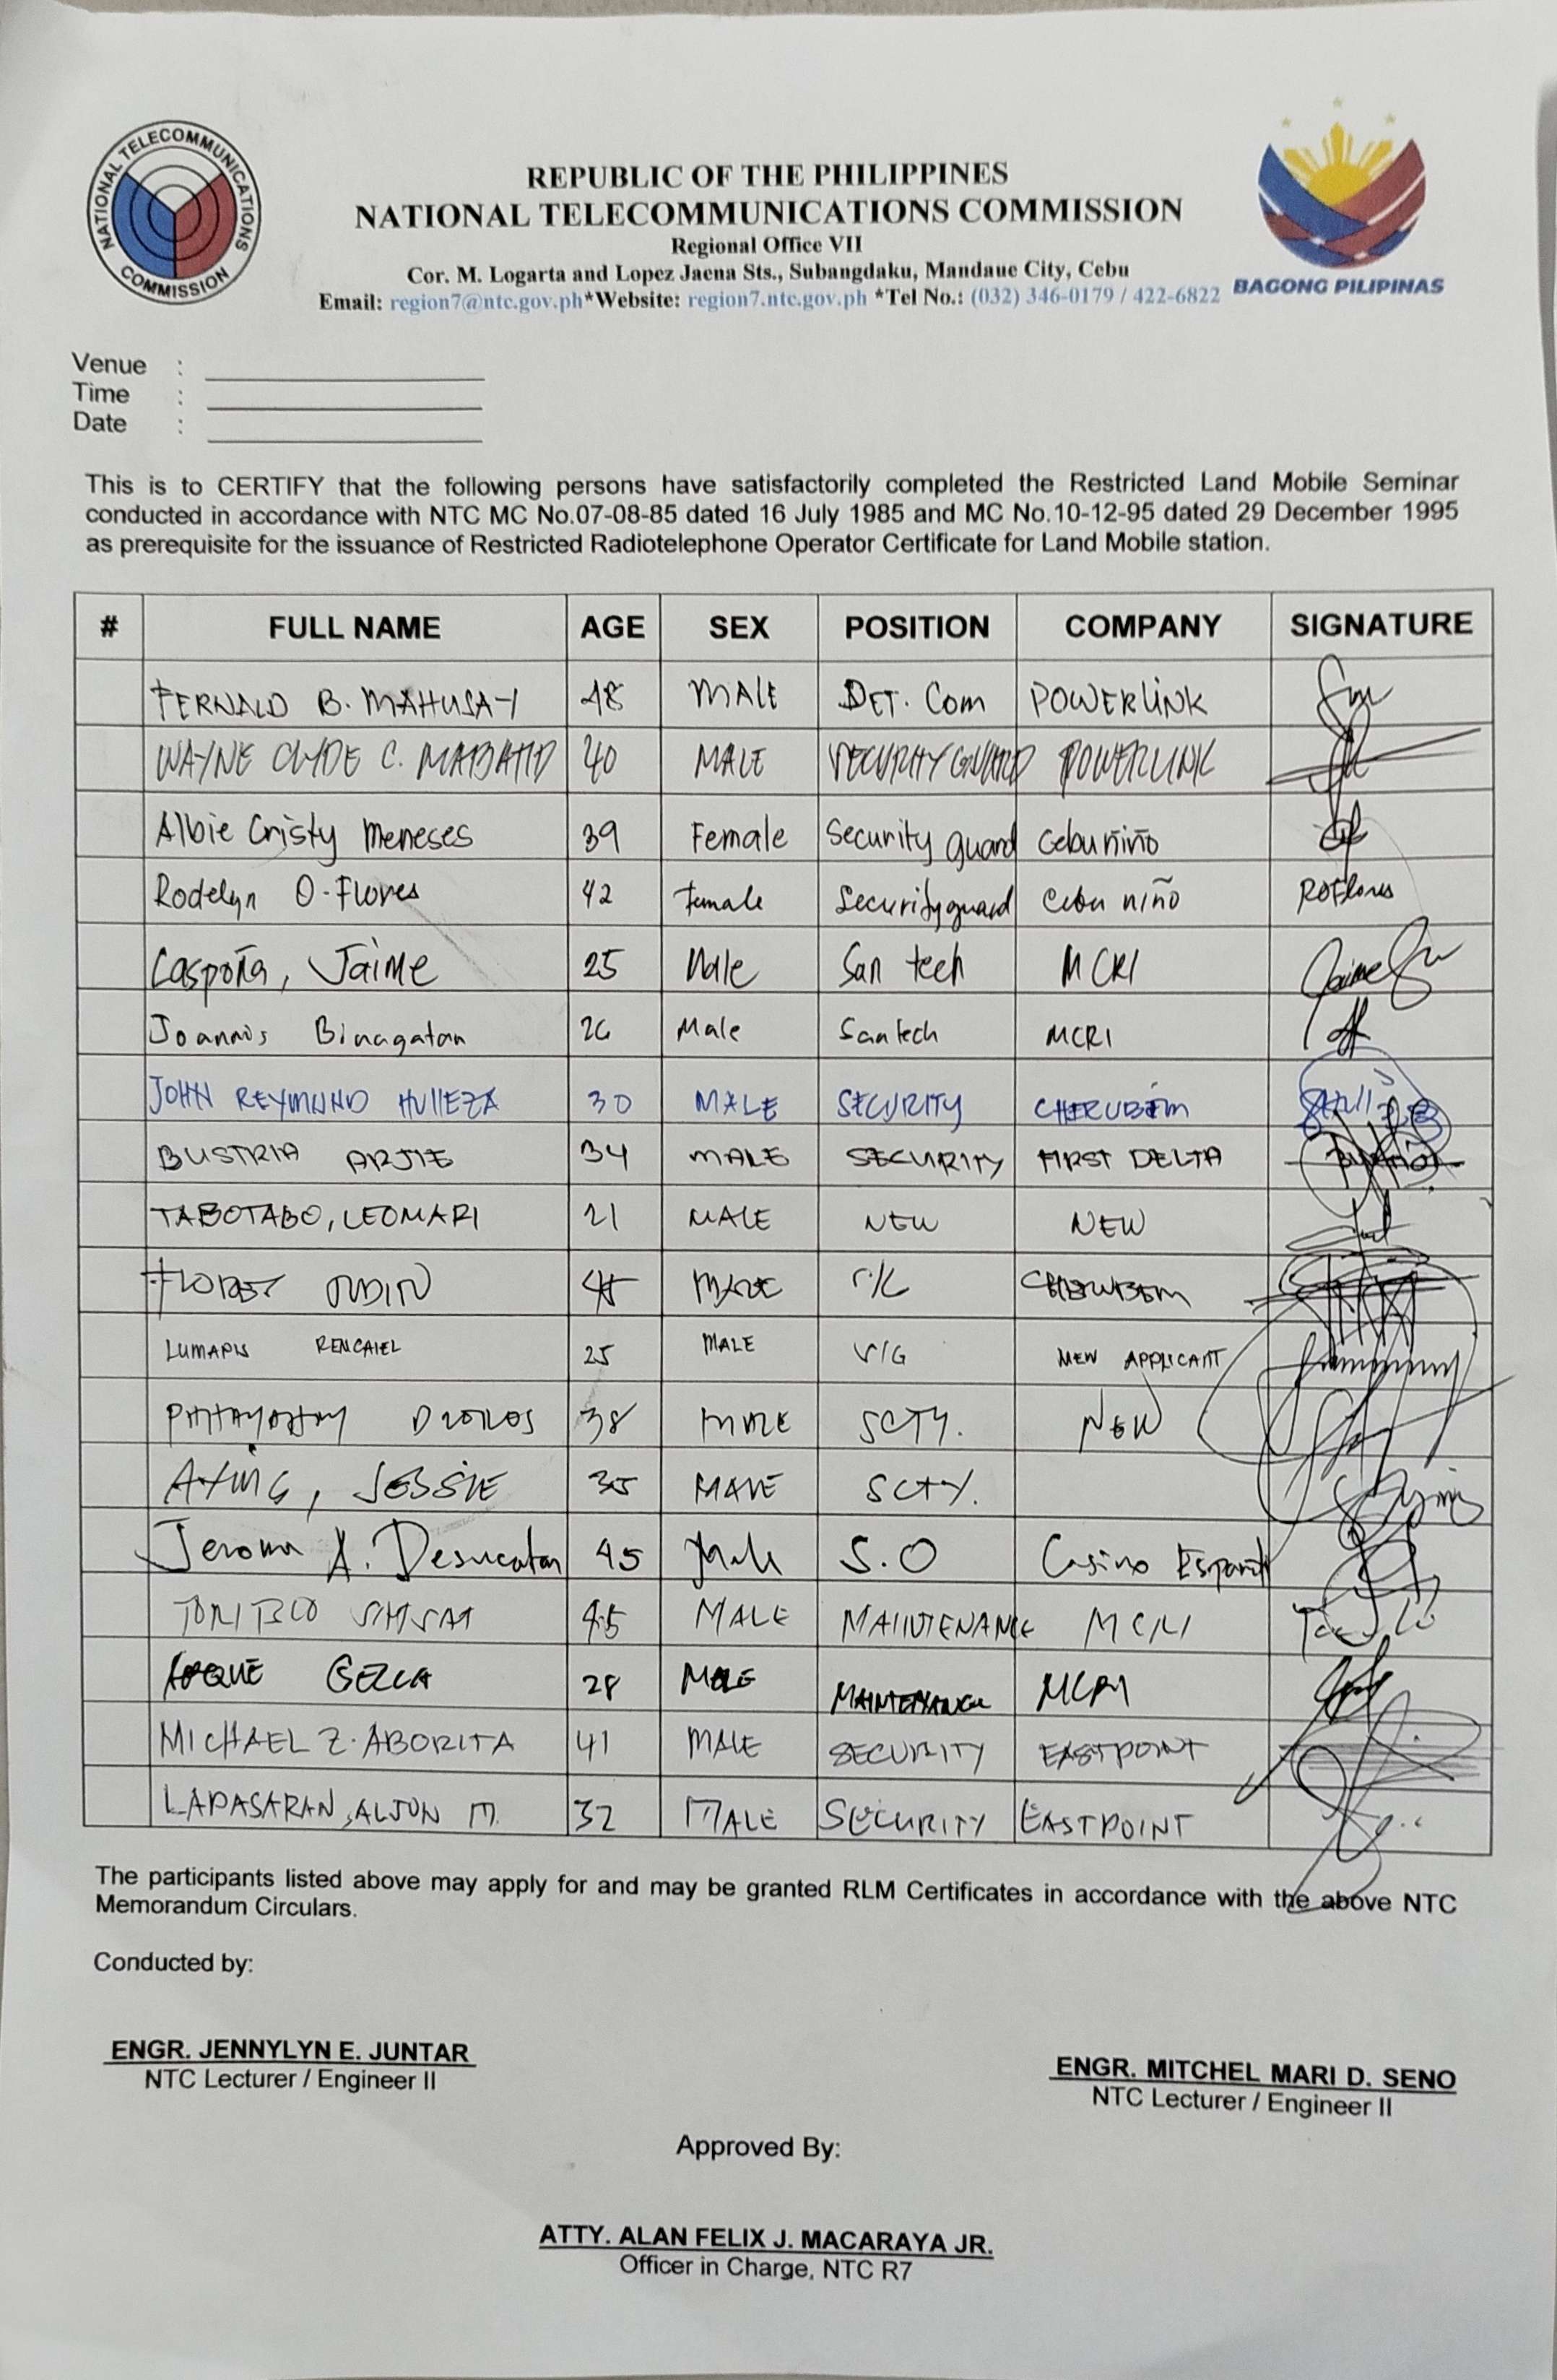 NATIONAL TELECOMMUNICATIONS COMMISSION
REPUBLIC OF THE PHILIPPINES
NATIONAL TELECOMMUNICATIONS COMMISSION
Regional Office VII
Cor. M. Logarta and Lopez Jaena Sts., Subangdaku, Mandaue City, Cebu
Email: region7@ntc.gov.ph*Website: region7.ntc.gov.ph *Tel No.: (032) 346-0179 / 422-6822
BAGONG PILIPINAS
Venue :
Time :
Date :
This is to CERTIFY that the following persons have satisfactorily completed the Restricted Land Mobile Seminar
conducted in accordance with NTC MC No.07-08-85 dated 16 July 1985 and MC No.10-12-95 dated 29 December 1995
as prerequisite for the issuance of Restricted Radiotelephone Operator Certificate for Land Mobile station.
# FULL NAME AGE SEX POSITION COMPANY SIGNATURE
FERNALD B. MAHUSAY 48 MALE DET. Com POWERLINK
WAYNE CLYDE C. MABATID 40 MALE SECURITY GUARD POWERLINK
Albie Cristy Meneses 39 Female Security guard Cebu niño
Rodelyn O-Flores 42 Female Security guard Cebu niño ROFlores
Caspoña, Jaime 25 Male San tech MCRI Jaime
Joannos Binagatan 26 Male San tech MCRI
JOHN REYMUND HULLEZA 30 MALE SECURITY CHERUBIM
BUSTRIA ARJIE 34 MALE SECURITY FIRST DELTA
TABOTABO, LEOMARI 21 MALE NEW NEW
MALE CHERUBIM
LUMAPIS 25 MALE S/G NEW APPLICANT
38 MALE SCTY. NEW
AYING, JESSIE 35 MALE SCTY.
Jerome A. Desucatan 45 Male S.O Casino Español
TORIBIO 45 MALE MAINTENANCE MCRI
28 MALE MAINTENANCE MCRI
MICHAEL Z. ABORITA 41 MALE SECURITY EASTPOINT
LAPASARAN, ALJON M. 32 MALE SECURITY EASTPOINT
The participants listed above may apply for and may be granted RLM Certificates in accordance with the above NTC
Memorandum Circulars.
Conducted by:
ENGR. JENNYLYN E. JUNTAR
NTC Lecturer / Engineer II
ENGR. MITCHEL MARI D. SENO
NTC Lecturer / Engineer II
Approved By:
ATTY. ALAN FELIX J. MACARAYA JR.
Officer in Charge, NTC R7